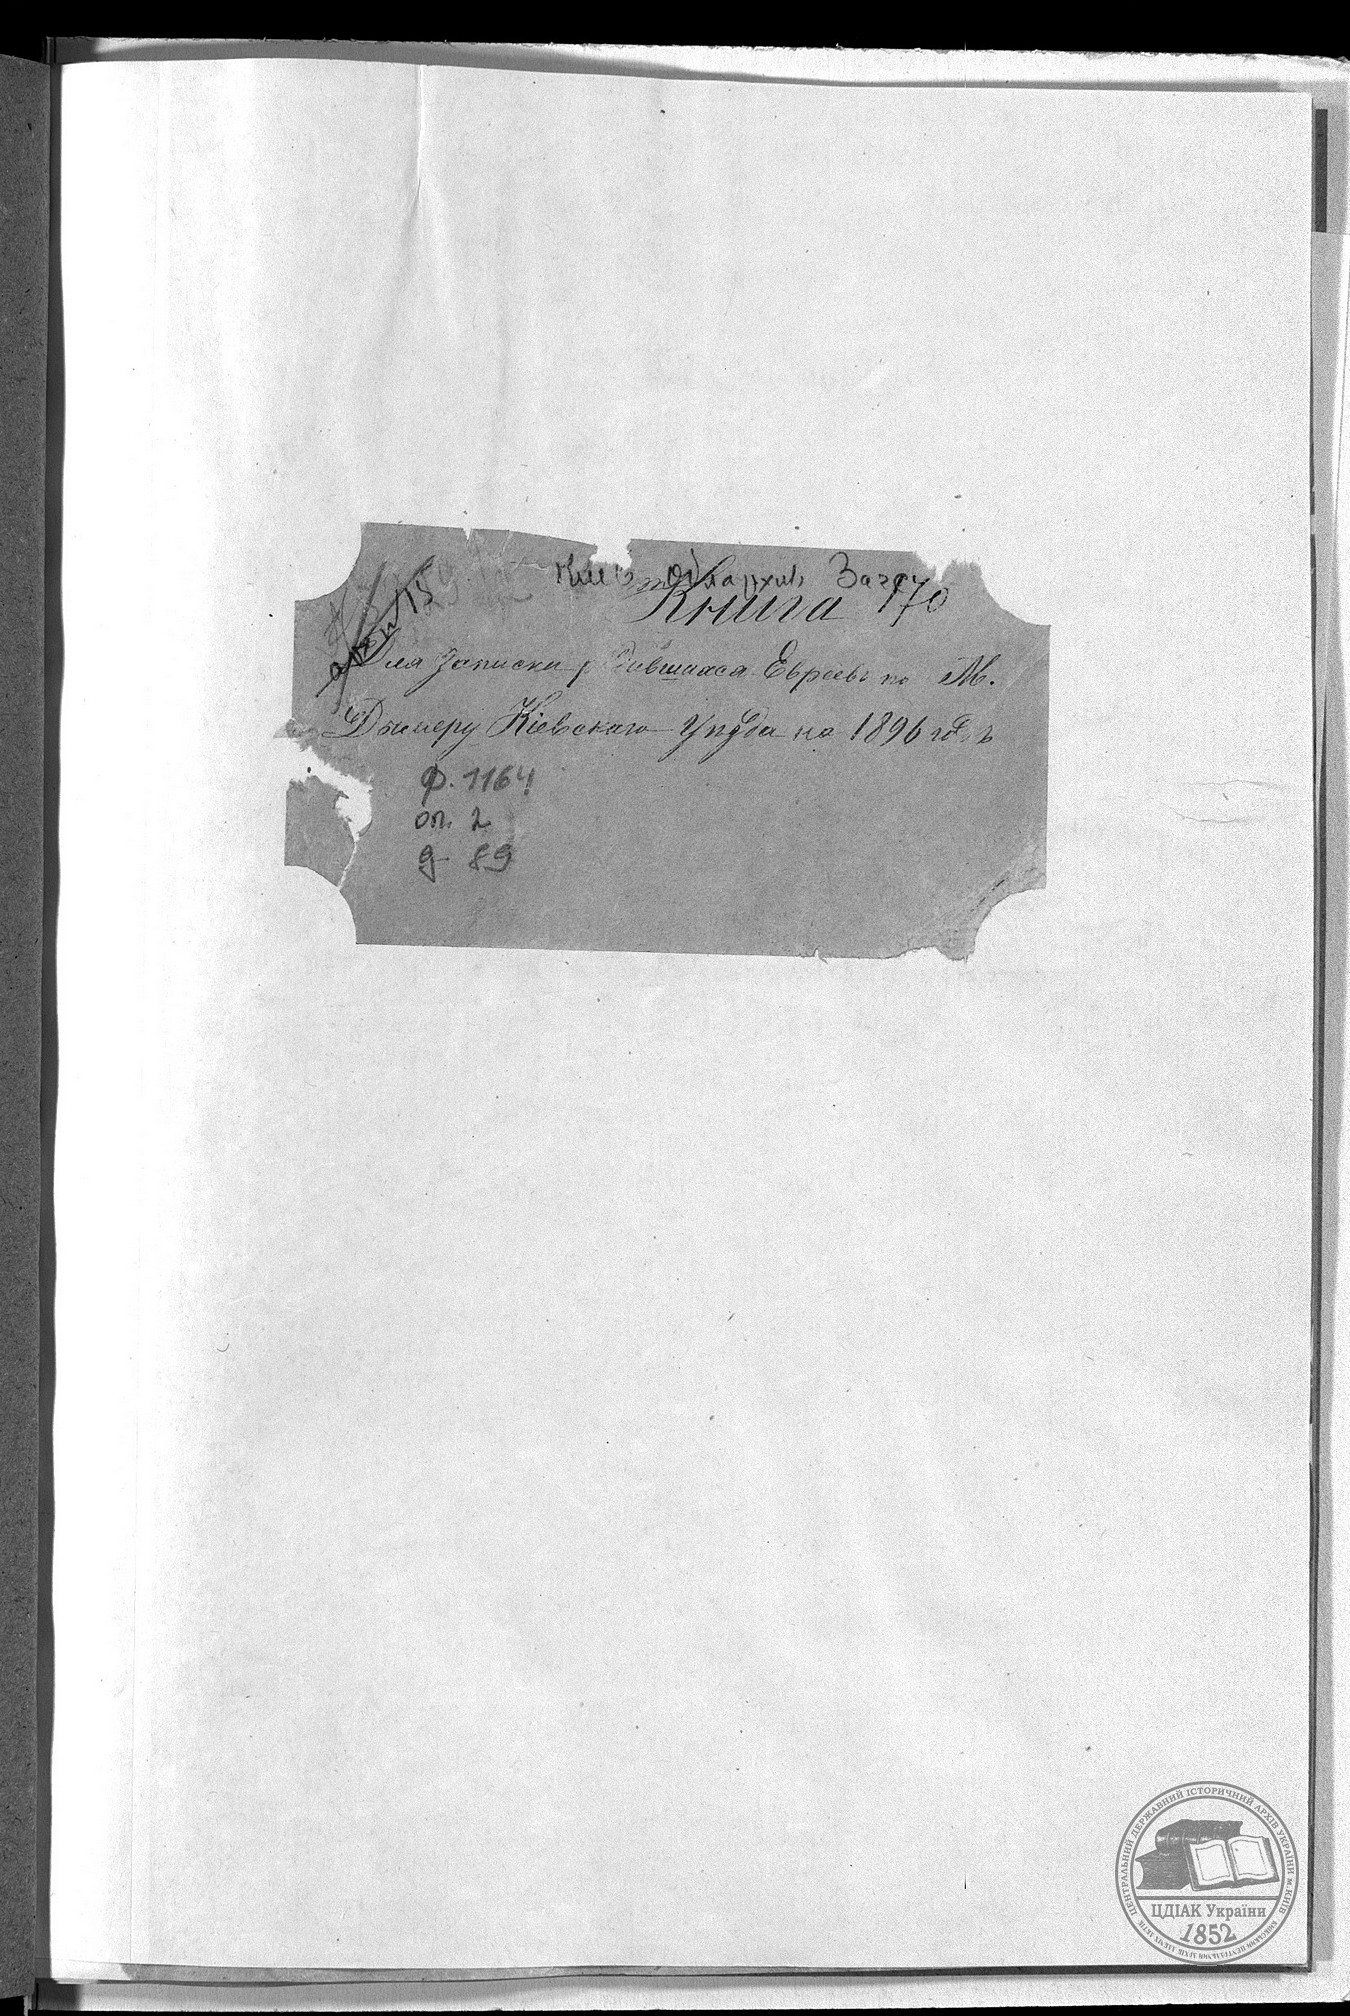 Киев Обл архив Загс
Книга 170
арх. 15
Для записки родившихся Евреевъ по М.
Дымеру Кіевскаго Уѣзда на 1896 годъ
ф. 1164
оп. 2
д. 89
ЦЕНТРАЛЬНИЙ ДЕРЖАВНИЙ ІСТОРИЧНИЙ АРХІВ УКРАЇНИ м. КИЇВ
ЦДІАК України
1852